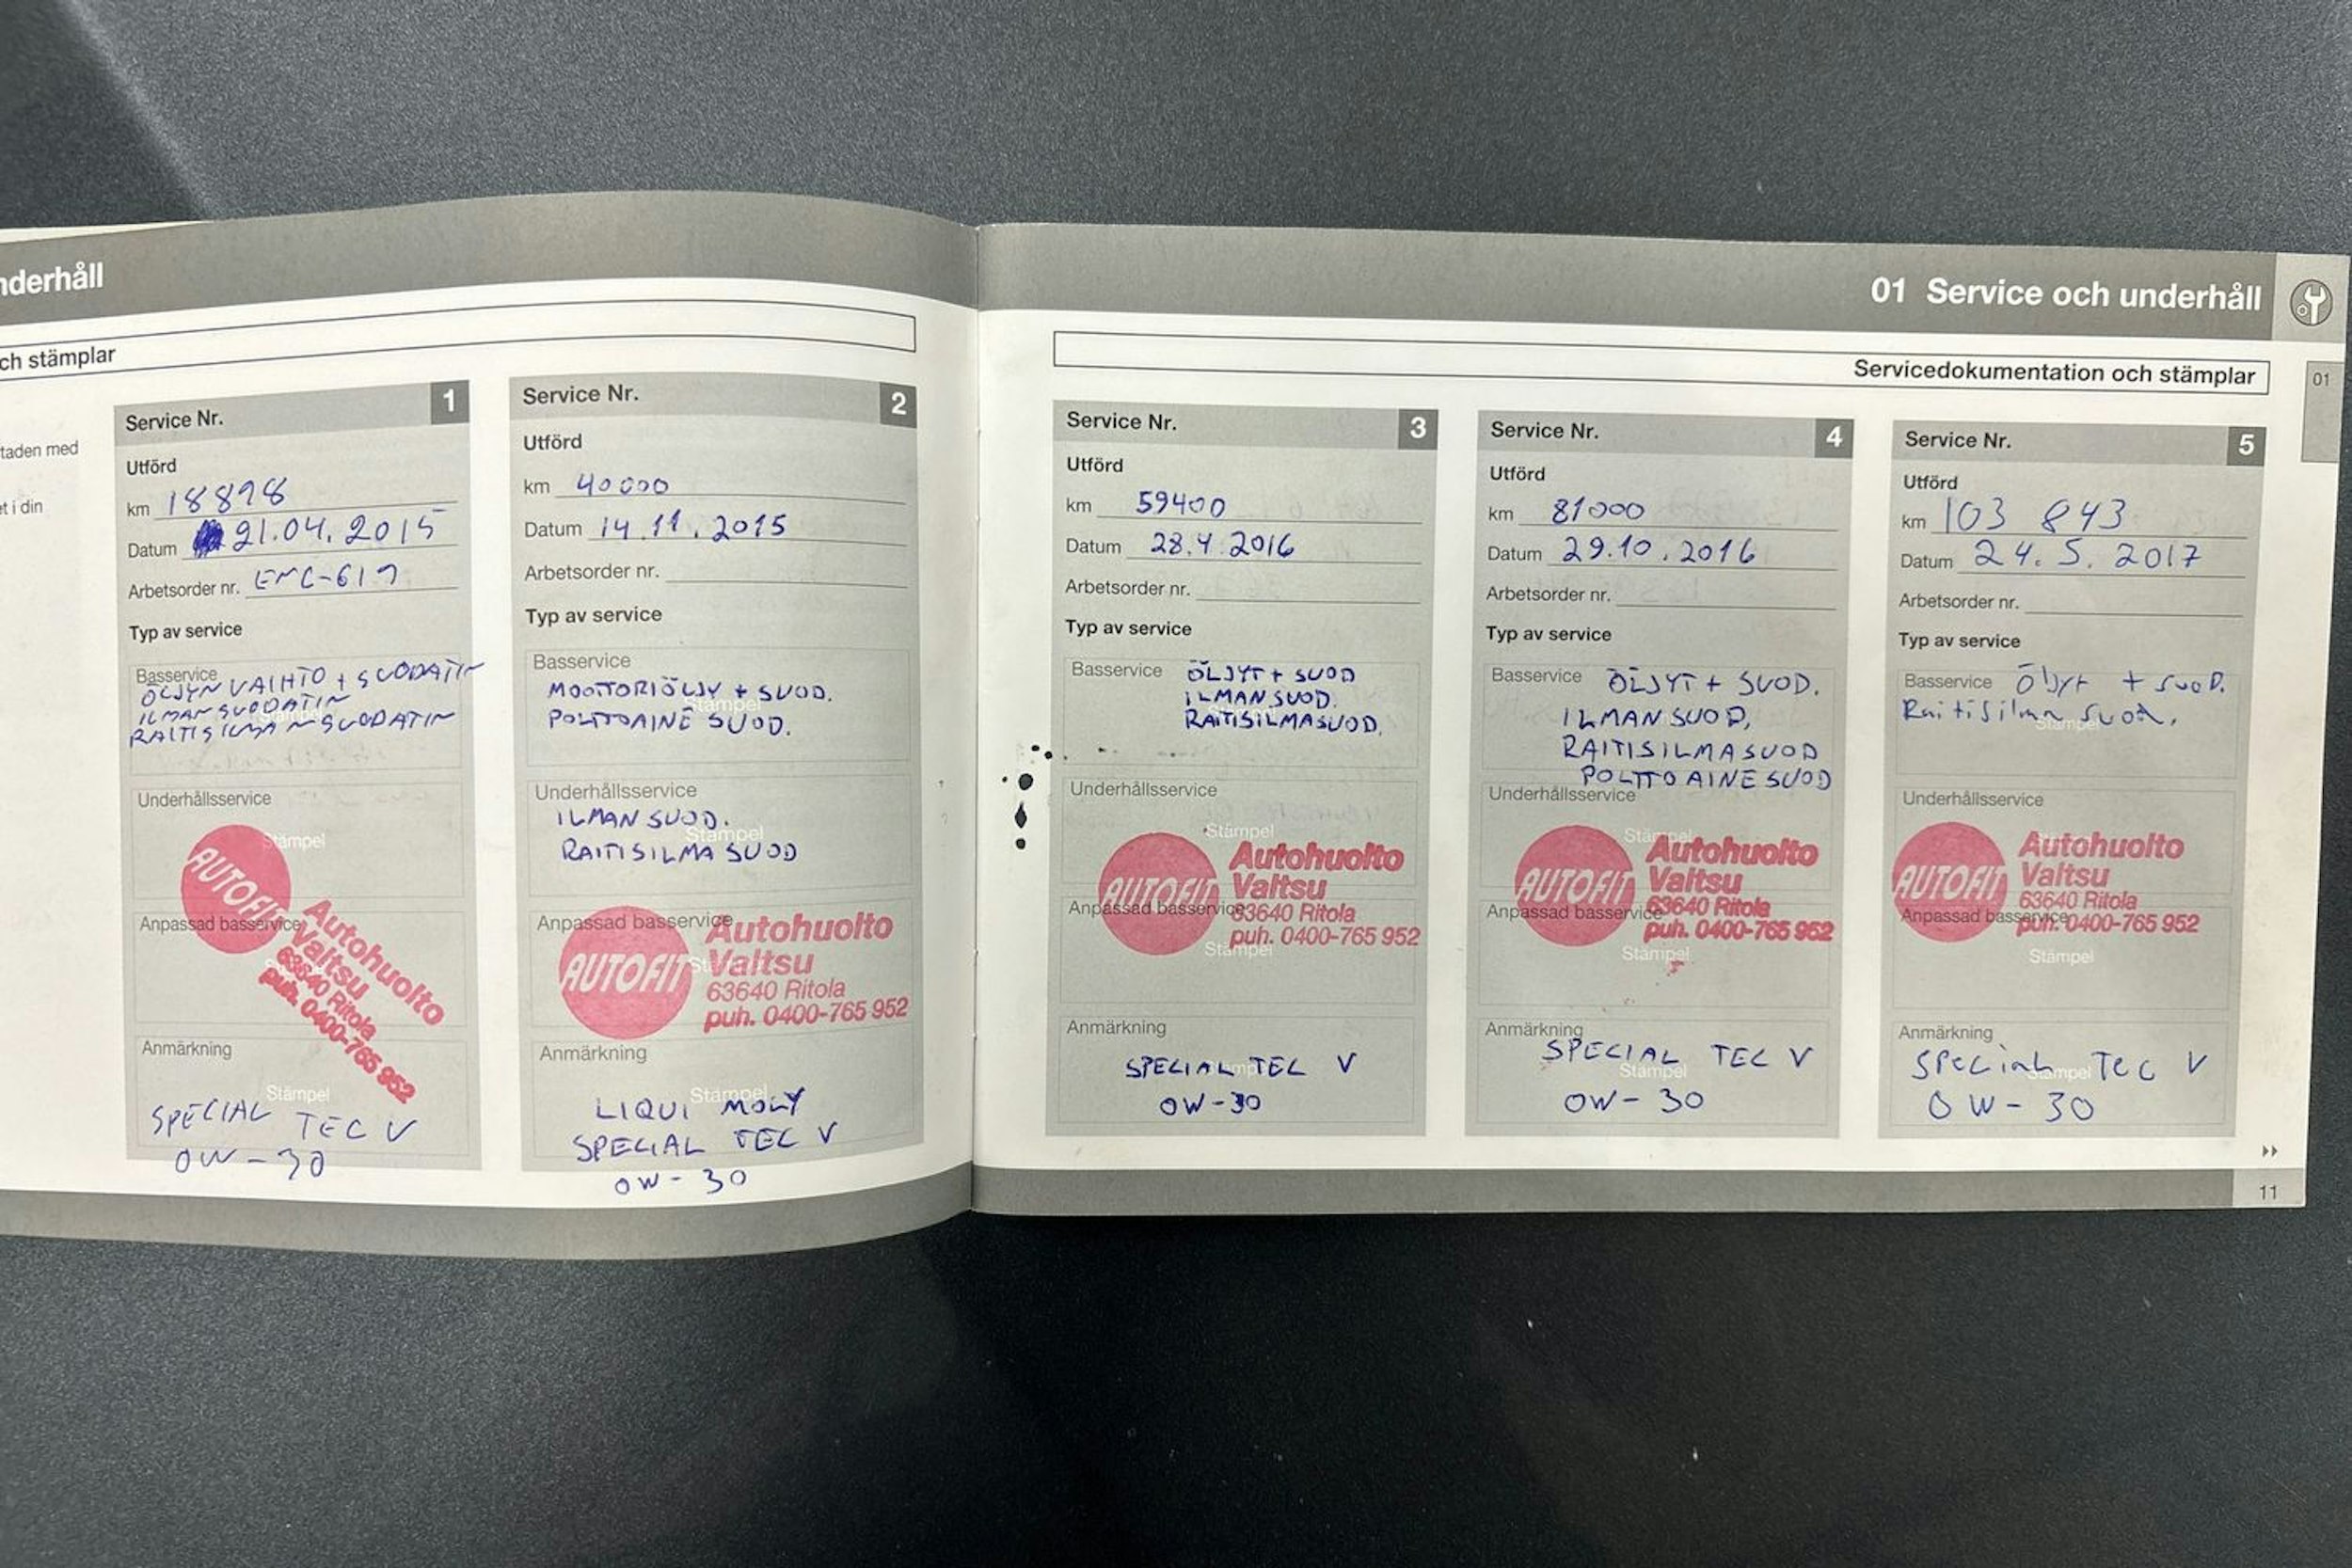 nderhåll
ch stämplar
taden med
et i din
Service Nr. 1
Utförd
km 18898
Datum 21.04.2015
Arbetsorder nr. EMC-619
Typ av service
Basservice
ÖLJYN VAIHTO + SUODATIN
ILMANSUODATIN
RAITISILMANSUODATIN
Underhållsservice
Stämpel
AUTOFIT
Autohuolto
Valtsu
63640 Ritola
puh. 0400-765 952
Anpassad basservice
Anmärkning
Stämpel
SPECIAL TEC V
0W-30
Service Nr. 2
Utförd
km 40000
Datum 14.11.2015
Arbetsorder nr.
Typ av service
Basservice
MOOTTORIÖLJY + SUOD.
Stämpel
POLTTOAINE SUOD.
Underhållsservice
ILMANSUOD.
Stämpel
RAITISILMASUOD
Anpassad basservice
AUTOFIT
Autohuolto
Valtsu
63640 Ritola
puh. 0400-765 952
Anmärkning
Stämpel
LIQUI MOLY
SPECIAL TEC V
0W-30
01 Service och underhåll
Servicedokumentation och stämplar
01
Service Nr. 3
Utförd
km 59400
Datum 28.4.2016
Arbetsorder nr.
Typ av service
Basservice ÖLJYT + SUOD
ILMANSUOD.
RAITISILMASUOD.
Underhållsservice
Stämpel
AUTOFIT
Autohuolto
Valtsu
63640 Ritola
puh. 0400-765 952
Anpassad basservice
Stämpel
Anmärkning
SPECIAL TEC V
0W-30
Service Nr. 4
Utförd
km 81000
Datum 29.10.2016
Arbetsorder nr.
Typ av service
Basservice ÖLJYT + SUOD.
ILMANSUOD,
RAITISILMASUOD
POLTTOAINESUOD
Underhållsservice
Stämpel
AUTOFIT
Autohuolto
Valtsu
63640 Ritola
puh. 0400-765 952
Anpassad basservice
Stämpel
Anmärkning
SPECIAL TEC V
Stämpel
0W-30
Service Nr. 5
Utförd
km 103 843
Datum 24.5.2017
Arbetsorder nr.
Typ av service
Basservice Öljyt + suoD.
Raitisilman suod.
Stämpel
Underhållsservice
Stämpel
AUTOFIT
Autohuolto
Valtsu
63640 Ritola
puh. 0400-765 952
Anpassad basservice
Stämpel
Anmärkning
SPecial Tec V
Stämpel
0W-30
11